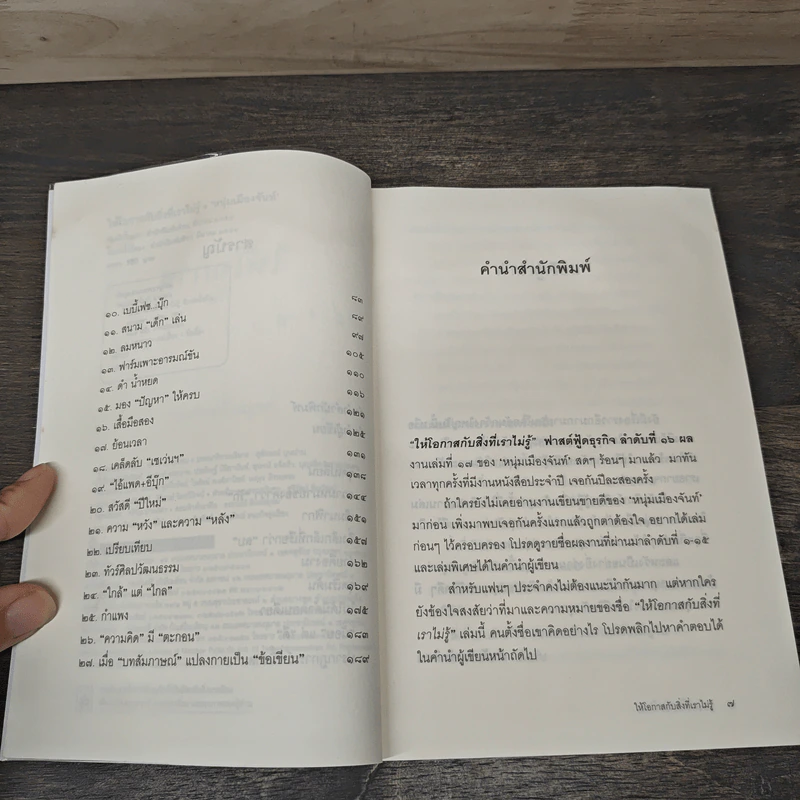 ๑๐. เบบี้เฟซ...บุ๊ก ๘๓
๑๑. สนาม “เด็ก” เล่น ๘๙
๑๒. ลมหนาว ๙๗
๑๓. ฟาร์มเพาะอารมณ์ขัน ๑๐๕
๑๔. ดำ น้ำหยด ๑๑๐
๑๕. มอง “ปัญหา” ให้ครบ ๑๑๖
๑๖. เสื้อมือสอง ๑๒๑
๑๗. ย้อนเวลา ๑๒๕
๑๘. เคล็ดลับ “เซเว่นฯ” ๑๓๑
๑๙. “ไอ้แพด+อีบุ๊ก” ๑๓๘
๒๐. สวัสดี “ปีใหม่” ๑๔๔
๒๑. ความ “หวัง” และความ “หลัง” ๑๕๑
๒๒. เปรียบเทียบ ๑๕๗
๒๓. ทัวร์ศิลปวัฒนธรรม ๑๖๒
๒๔. “ใกล้” แต่ “ไกล” ๑๖๙
๒๕. กำแพง ๑๗๕
๒๖. “ความคิด” มี “ตะกอน” ๑๘๓
๒๗. เมื่อ “บทสัมภาษณ์” แปลงกายเป็น “ข้อเขียน” ๑๘๙
คำนำสำนักพิมพ์
“ให้โอกาสกับสิ่งที่เราไม่รู้” ฟาสต์ฟู้ดธุรกิจ ลำดับที่ ๑๖ ผล
งานเล่มที่ ๑๗ ของ ‘หนุ่มเมืองจันท์’ สดๆ ร้อนๆ มาแล้ว มาทัน
เวลาทุกครั้งที่มีงานหนังสือประจำปี เจอกันปีละสองครั้ง
ถ้าใครยังไม่เคยอ่านงานเขียนขายดีของ ‘หนุ่มเมืองจันท์’
มาก่อน เพิ่งมาพบเจอกันครั้งแรกแล้วถูกตาต้องใจ อยากได้เล่ม
ก่อนๆ ไว้ครอบครอง โปรดดูรายชื่อผลงานที่ผ่านมาลำดับที่ ๑-๑๕
และเล่มพิเศษได้ในคำนำผู้เขียน
สำหรับแฟนๆ ประจำคงไม่ต้องแนะนำกันมาก แต่หากใคร
ยังข้องใจสงสัยว่าที่มาและความหมายของชื่อ “ให้โอกาสกับสิ่งที่
เราไม่รู้” เล่มนี้ คนตั้งชื่อเขาคิดอย่างไร โปรดพลิกไปหาคำตอบได้
ในคำนำผู้เขียนหน้าถัดไป
ให้โอกาสกับสิ่งที่เราไม่รู้ ๗